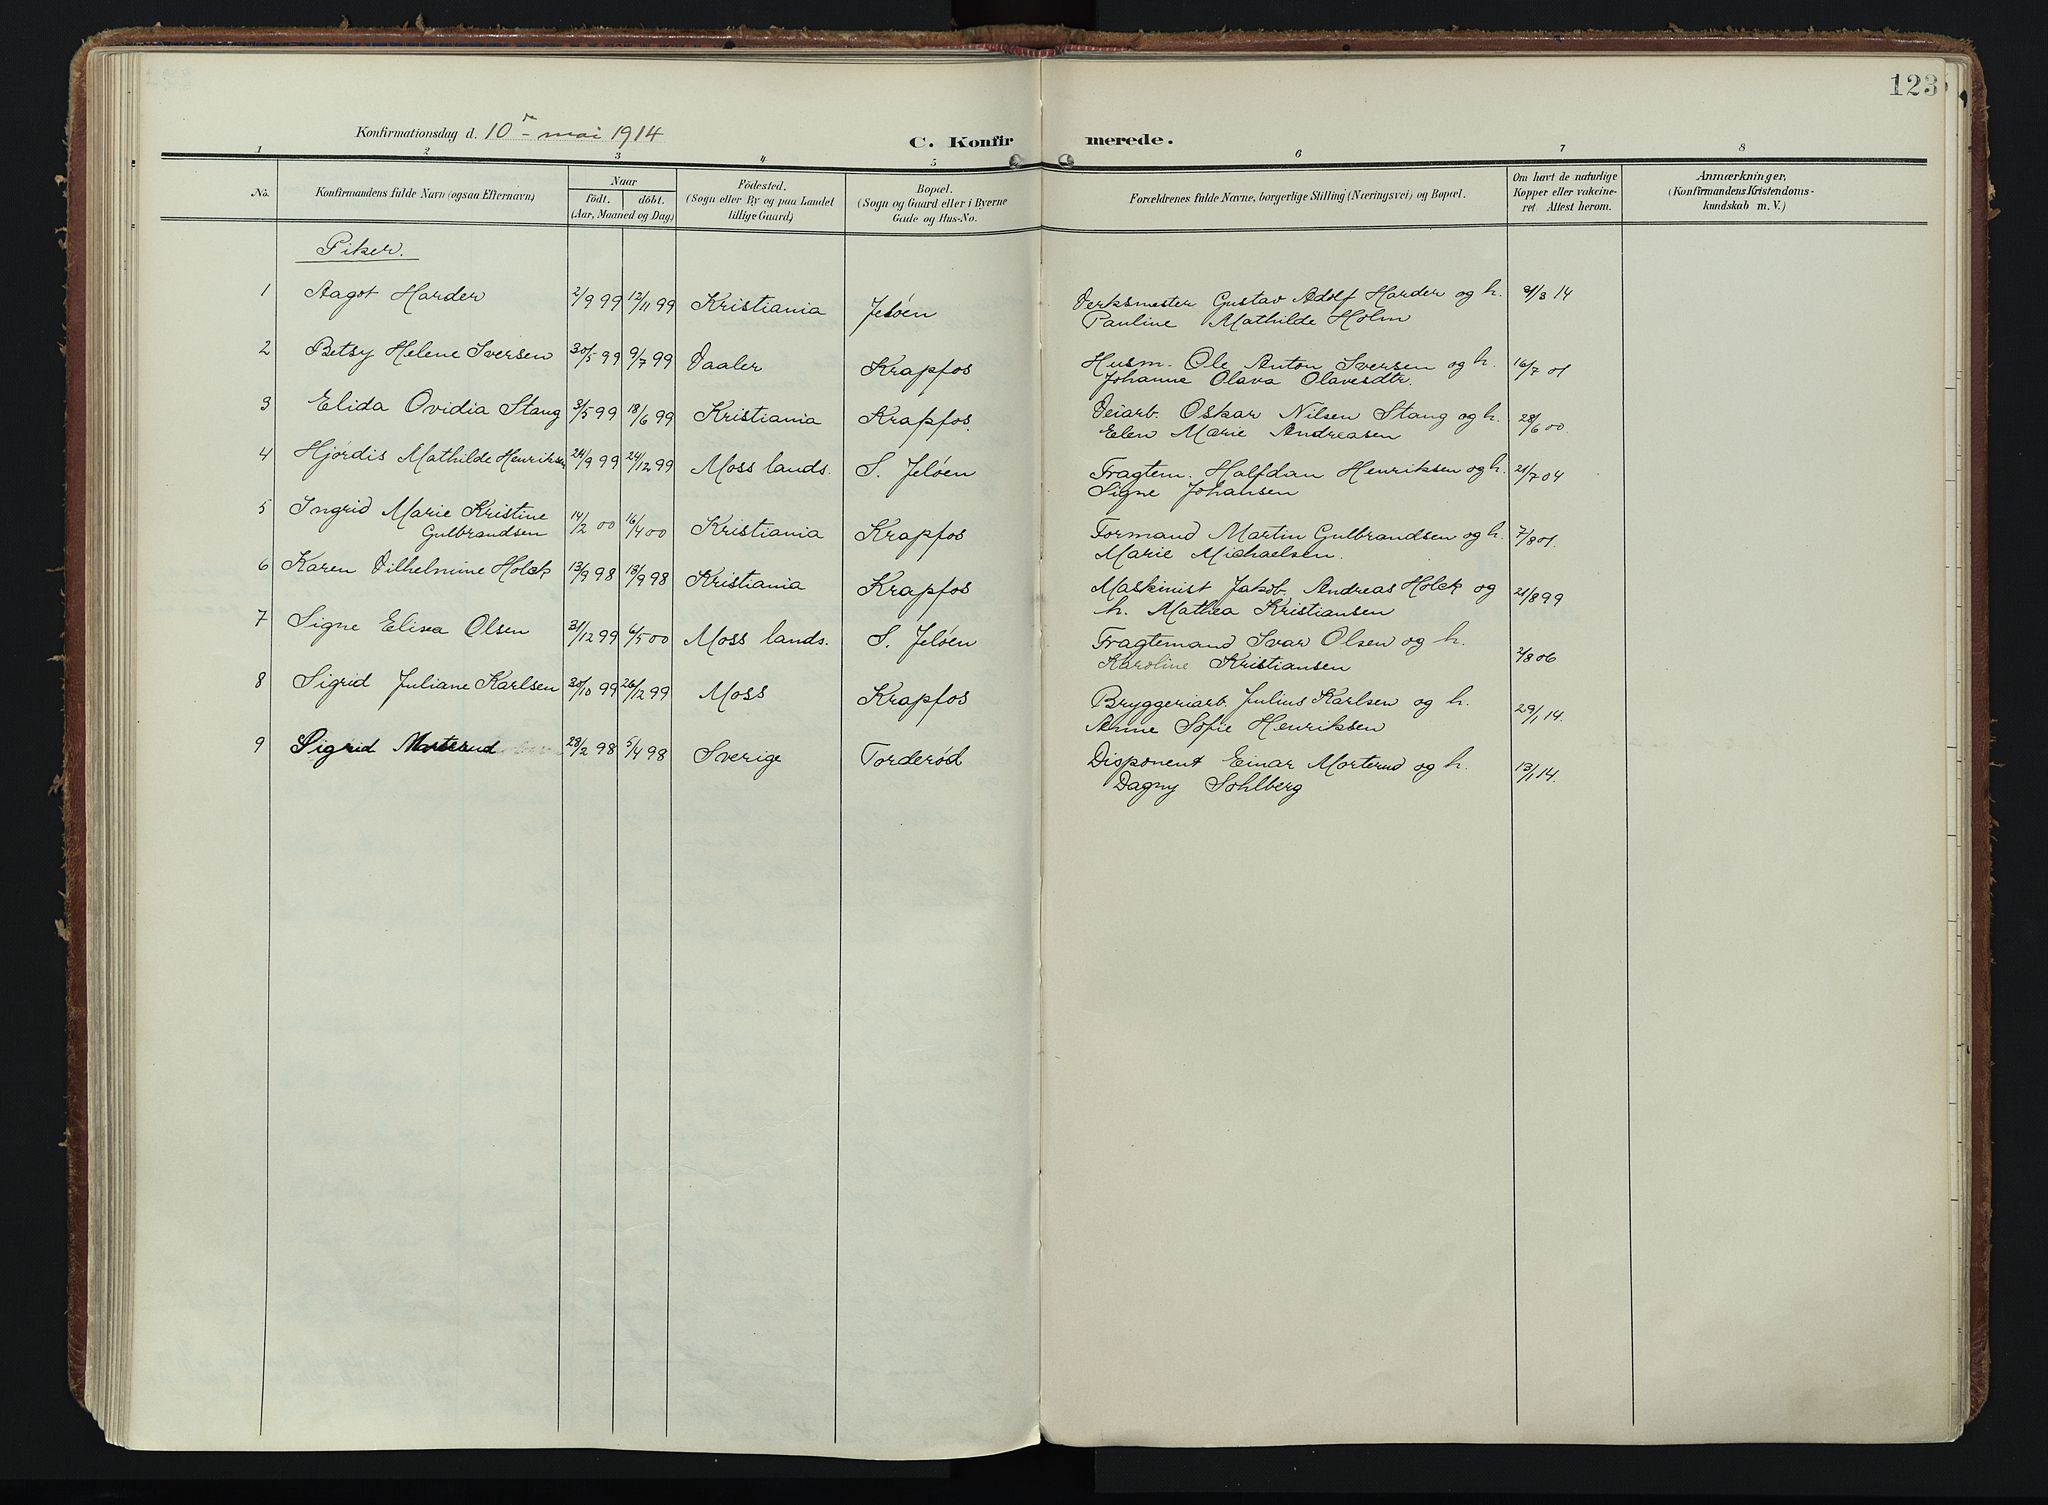 123
Konfirmationsdag d. 10de mai 1914
C. Konfirmerede.
1 2 3 4 5 6 7 8
No.
Konfirmandens fulde Navn (ogsaa Efternavn)
Naar
født. døbt.
(Aar, Maaned og Dag)
Fødested.
(Sogn eller By og paa Landet
tillige Gaard)
Bopæl.
(Sogn og Gaard eller i Byerne
Gade og Hus-No.
Forældrenes fulde Navne, borgerlige Stilling (Næringsvei) og Bopæl.
Om havt de naturlige
Kopper eller vakcine-
ret. Attest herom.
Anmærkninger,
(Konfirmandens Kristendoms-
kundskab m. V.)
Piker.
1 Aagot Harder 2/9 99 12/11 99 Kristiania Jeløen Verksmester Gustav Adolf Harder og h. 21/3 14
Pauline Mathilde Holm
2 Betsy Helene Iversen 30/5 99 9/7 99 Vaaler Krapfos Husm. Ole Anton Iversen og h. 16/7 01
Johanne Olava Olavesdtr.
3 Elida Ovidia Stang 3/5 99 18/6 99 Kristiania Krapfos. Veiarb. Oskar Nilsen Stang og h. 28/6 00.
Elen Marie Andreasen
4 Hjørdis Mathilde Henriksen 24/9 99 24/12 99 Moss lands. S. Jeløen Fragtem. Halfdan Henriksen og h. 21/7 04
Signe Johansen
5 Ingrid Marie Kristine
Gulbrandsen 14/2 00 16/4 00 Kristiania Krapfos Formand Martin Gulbrandsen og h. 7/8 01.
Marie Michaelsen.
6 Karen Vilhelmine Holck 13/9 98 18/9 98 Kristiania Krapfos Maskinist Jakob Andreas Holck og 21/8 99
h. Mathea Kristiansen
7 Signe Elisea Olsen 31/12 99 6/5 00 Moss lands. S. Jeløen Fragtemand Ivar Olsen og h. 2/8 06
Karoline Kristiansen
8 Sigrid Juliane Karlsen 30/10 99 26/12 99 Moss Krapfos Bryggeriarb. Julius Karlsen og h. 29/1 14.
Anne Sofie Henriksen
9 Sigrid Morterud 28/2 98 5/4 98 Sverige Torderød Disponent Einar Morterud og h. 13/1 14.
Dagny Sohlberg